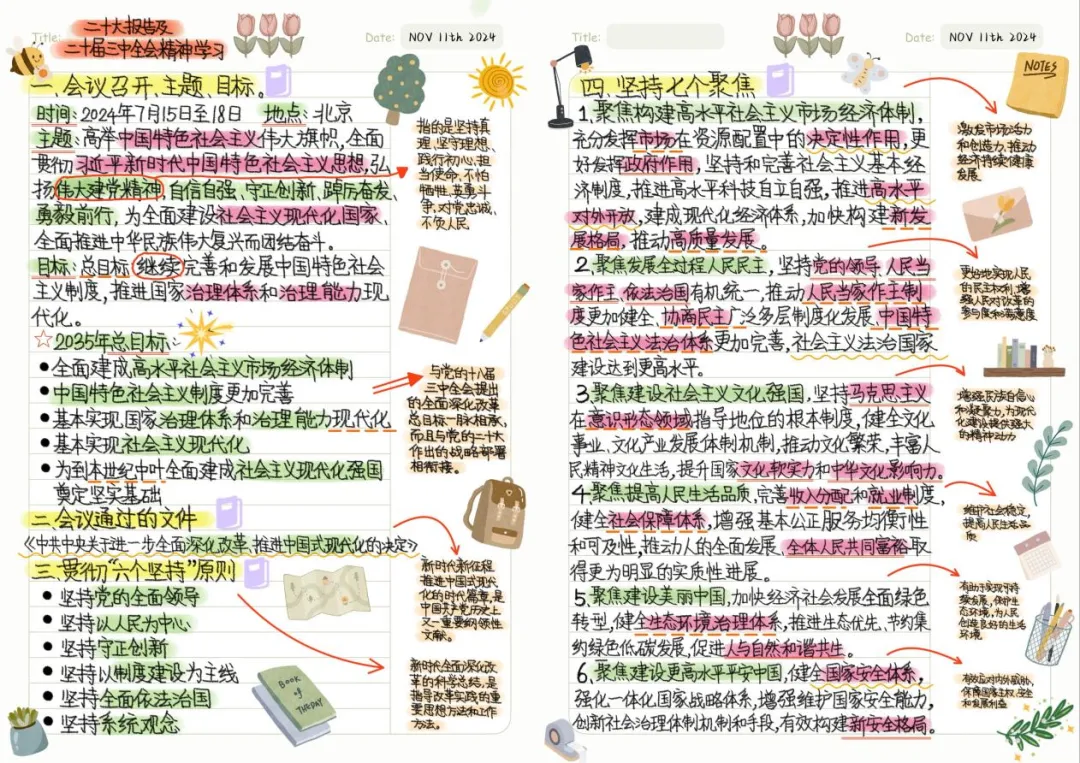 二十大报告及
二十届三中全会精神学习
Title:
Date: NOV 11th 2024
一、会议召开、主题、目标。
时间：2024年7月15日至18日 地点：北京
主题：高举中国特色社会主义伟大旗帜，全面
贯彻习近平新时代中国特色社会主义思想，弘
扬伟大建党精神，自信自强、守正创新、踔厉奋发、
勇毅前行，为全面建设社会主义现代化国家、
全面推进中华民族伟大复兴而团结奋斗。
目标：总目标：继续完善和发展中国特色社会
主义制度，推进国家治理体系和治理能力现
代化。
☆2035年总目标：
●全面建成高水平社会主义市场经济体制
●中国特色社会主义制度更加完善
●基本实现国家治理体系和治理能力现代化
●基本实现社会主义现代化
●为到本世纪中叶全面建成社会主义现代化强国
奠定坚实基础
二、会议通过的文件
《中共中央关于进一步全面深化改革、推进中国式现代化的决定》
三、贯彻“六个坚持”原则
● 坚持党的全面领导
● 坚持以人民为中心
● 坚持守正创新
● 坚持以制度建设为主线
● 坚持全面依法治国
● 坚持系统观念
指的是坚持真
理、坚守理想、
践行初心、担
当使命、不怕
牺牲、英勇斗
争、对党忠诚、
不负人民。
与党的十八届
三中全会提出
的全面深化改革
总目标一脉相承，
而且与党的二十大
作出的战略部署
相衔接。
新时代新征程
推进中国式现代
化的时代篇章，是
中国共产党历史上
又一重要纲领性
文献。
新时代全面深化改
革的科学总结，是
指导改革实践的重
要思想方法和工作
方法。
BOOK
of
THE DAY
Title:
Date: NOV 11th 2024
NOTES
四、坚持七个聚焦
1、聚焦构建高水平社会主义市场经济体制，
充分发挥市场在资源配置中的决定性作用，更
好发挥政府作用，坚持和完善社会主义基本经
济制度，推进高水平科技自立自强，推进高水平
对外开放，建成现代化经济体系，加快构建新发
展格局，推动高质量发展。
2、聚焦发展全过程人民民主，坚持党的领导、人民当
家作主、依法治国有机统一，推动人民当家作主制
度更加健全、协商民主广泛多层制度化发展、中国特
色社会主义法治体系更加完善，社会主义法治国家
建设达到更高水平。
3、聚焦建设社会主义文化强国，坚持马克思主义
在意识形态领域指导地位的根本制度，健全文化
事业、文化产业发展体制机制，推动文化繁荣，丰富人
民精神文化生活，提升国家文化软实力和中华文化影响力。
4、聚焦提高人民生活品质，完善收入分配和就业制度，
健全社会保障体系，增强基本公正服务均衡性
和可及性，推动人的全面发展、全体人民共同富裕取
得更为明显的实质性进展。
5、聚焦建设美丽中国，加快经济社会发展全面绿色
转型，健全生态环境治理体系，推进生态优先、节约集
约绿色低碳发展，促进人与自然和谐共生。
6、聚焦建设更高水平平安中国，健全国家安全体系，
强化一体化国家战略体系，增强维护国家安全能力，
创新社会治理体制机制和手段，有效构建新安全格局。
激发市场活力
和创造力，推动
经济持续健康
发展。
更好地实现人民
的民主权利，增
强人民对改革的
参与度和满意度
增强民族自信心
和凝聚力，为现代
化建设提供强大
的精神动力
维护社会稳定，
提高人民生活品
质
有助于实现可持
续发展，保护生
态环境，为人民
创造良好的生活
环境
有效应对内外威胁，
保障国家主权、安全
和发展利益